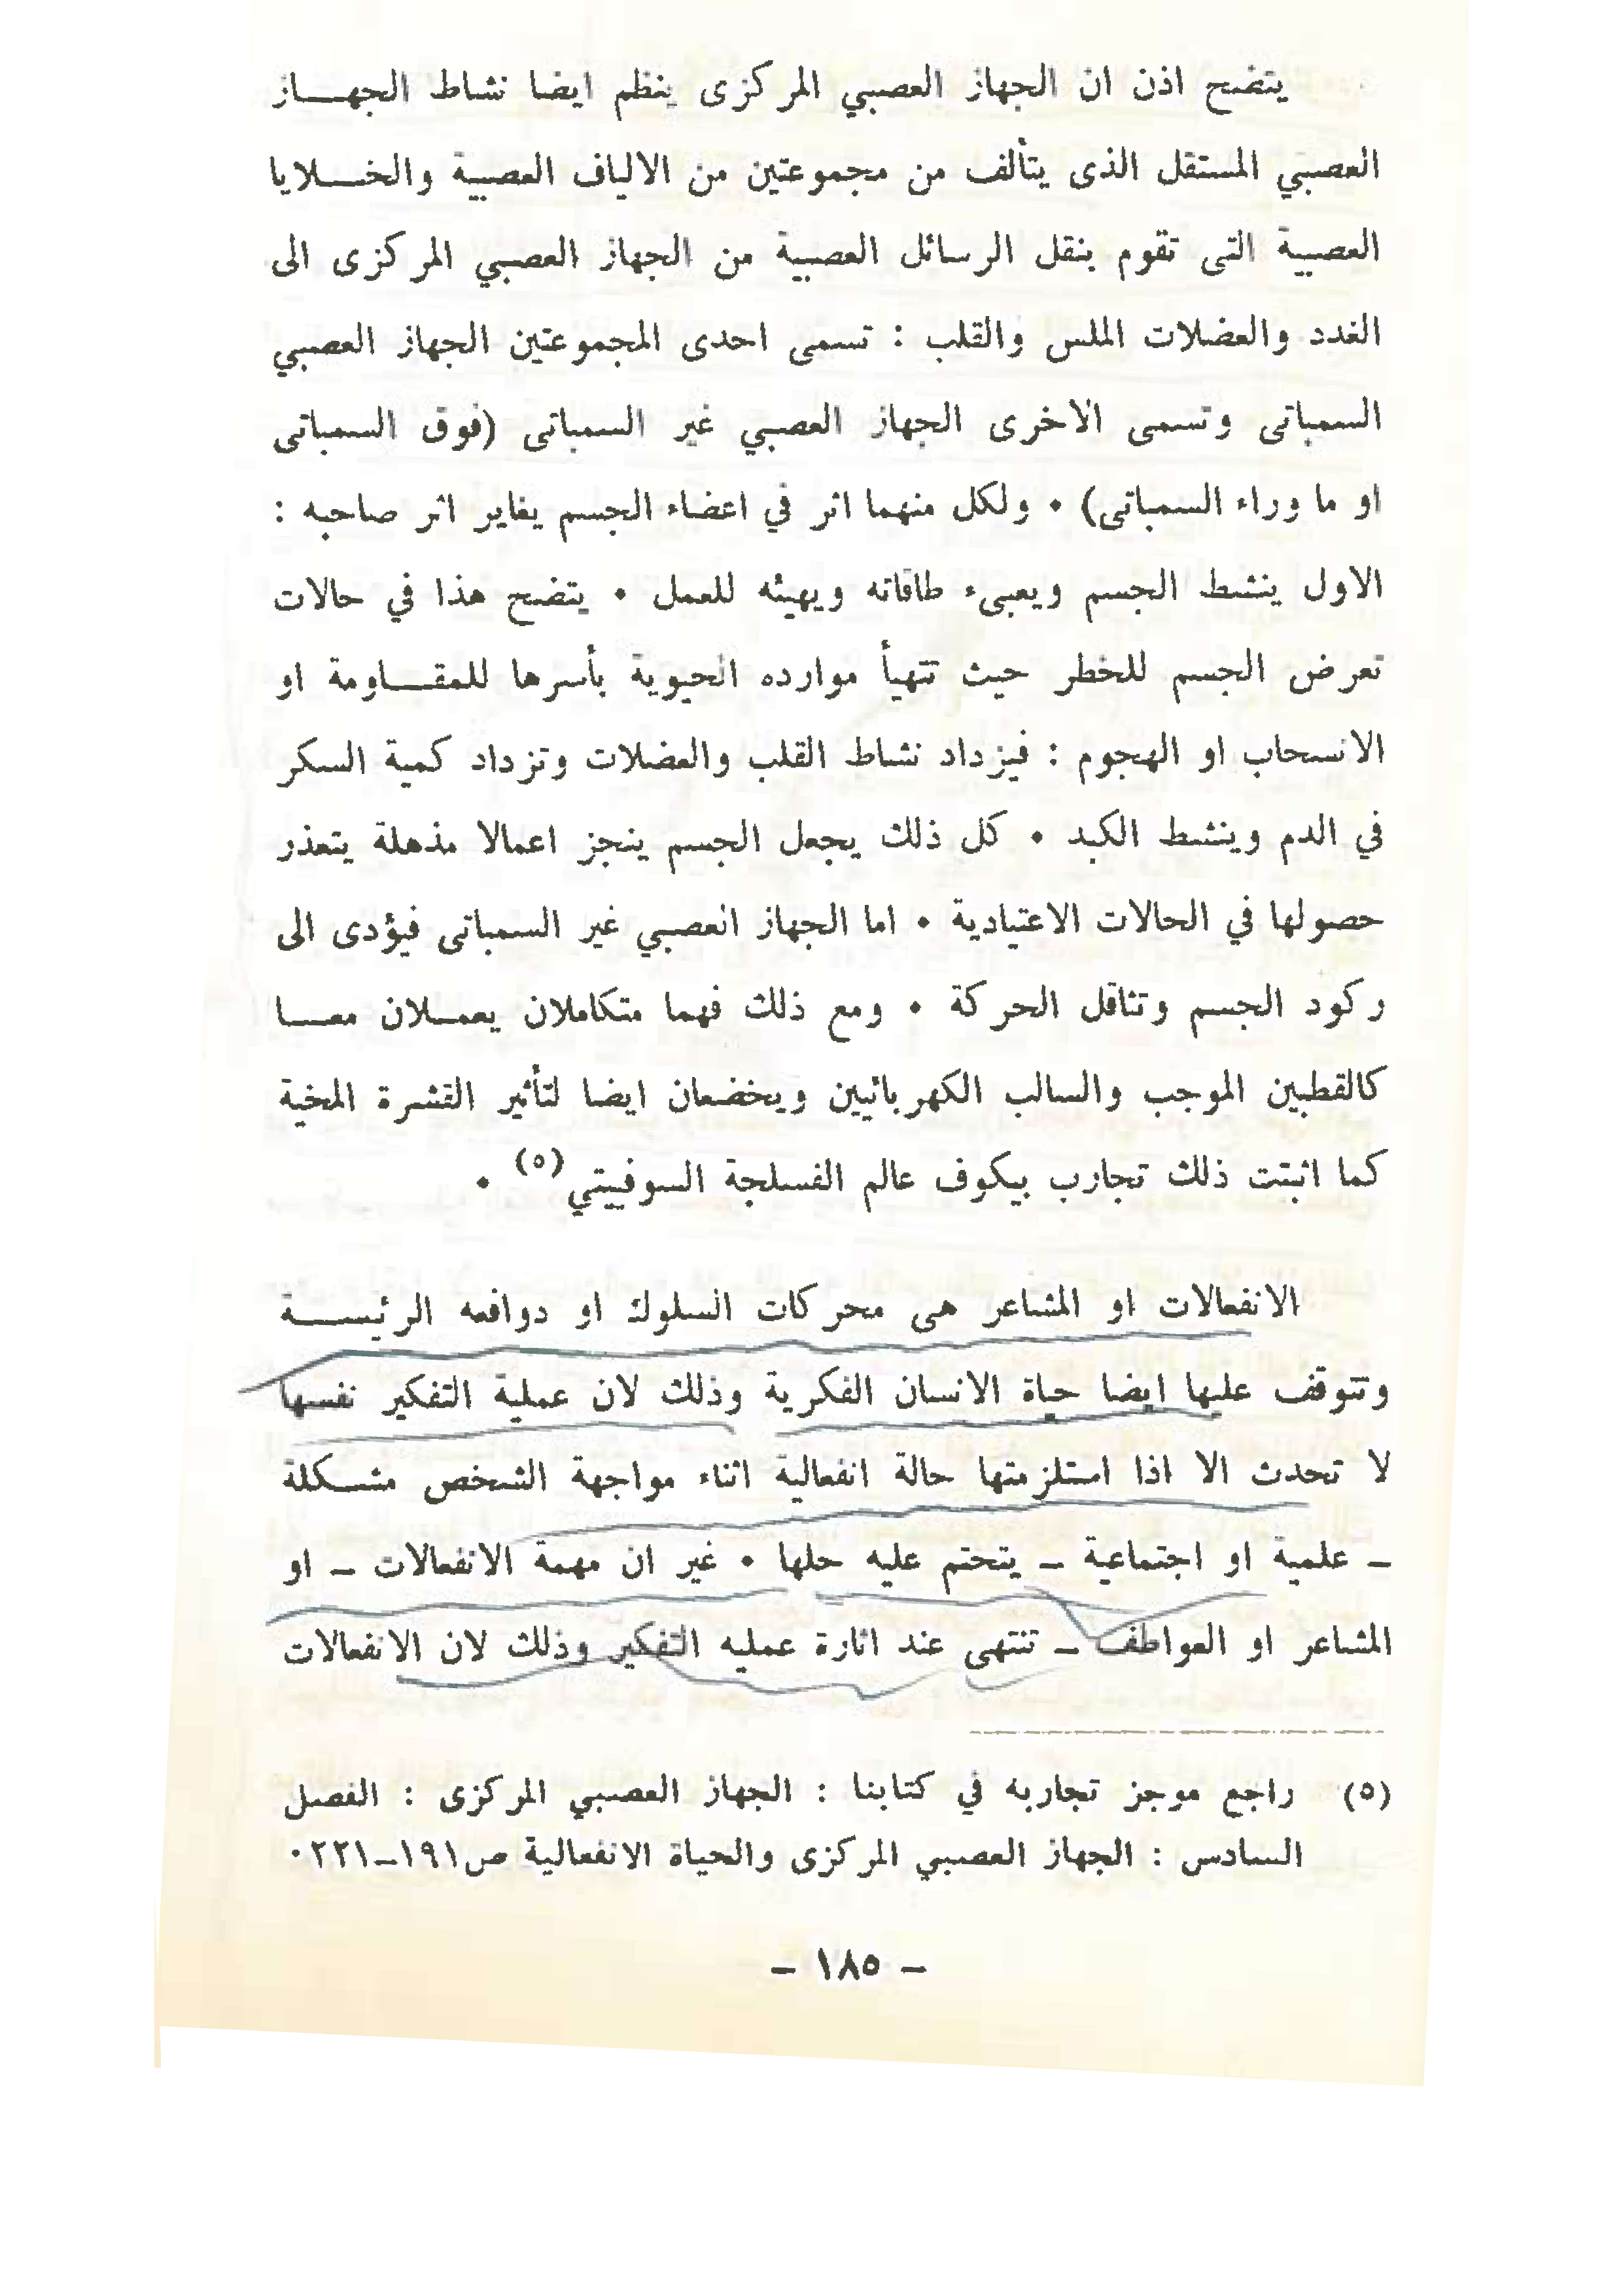 يتضح اذن ان الجهاز العصبي المركزى ينظم ايضا نشاط الجهـــاز
العصبي المستقل الذى يتألف من مجموعتين من الالياف العصبية والخـــلايا
العصبية التى تقوم بنقل الرسائل العصبية من الجهاز العصبي المركزى الى
الغدد والعضلات الملس والقلب : تسمى احدى المجموعتين الجهاز العصبي
السمباتى وتسمى الاخرى الجهاز العصبي غير السمباتى (فوق السمباتى
او ما وراء السمباتى) • ولكل منهما اثر في اعضاء الجسم يغاير اثر صاحبه :
الاول ينشط الجسم ويعبىء طاقاته ويهيئه للعمل • يتضح هذا في حالات
تعرض الجسم للخطر حيث تتهيأ موارده الحيوية بأسرها للمقـــاومة او
الانسحاب او الهجوم : فيزداد نشاط القلب والعضلات وتزداد كمية السكر
في الدم وينشط الكبد • كل ذلك يجعل الجسم ينجز اعمالا مذهلة يتعذر
حصولها في الحالات الاعتيادية • اما الجهاز العصبي غير السمباتى فيؤدى الى
ركود الجسم وتثاقل الحركة • ومع ذلك فهما متكاملان يعمــلان معـــا
كالقطبين الموجب والسالب الكهربائيين ويخضعان ايضا لتأثير القشرة المخية
كما اثبتت ذلك تجارب بيكوف عالم الفسلجة السوفييتي(٥) •
الانفعالات او المشاعر هى محركات السلوك او دوافعه الرئيســـة
وتتوقف عليها ايضا حياة الانسان الفكرية وذلك لان عملية التفكير نفسها
لا تحدث الا اذا استلزمتها حالة انفعالية اثناء مواجهة الشخص مشــكلة
ــ علمية او اجتماعية ــ يتحتم عليه حلها • غير ان مهمة الانفعالات ــ او
المشاعر او العواطف ــ تنتهى عند اثارة عمليه التفكير وذلك لان الانفعالات
(٥) راجع موجز تجاربه في كتابنا : الجهاز العصبي المركزى : الفصل
السادس : الجهاز العصبي المركزى والحياة الانفعالية ص١٩١ــ٢٢١٠
– ١٨٥ –